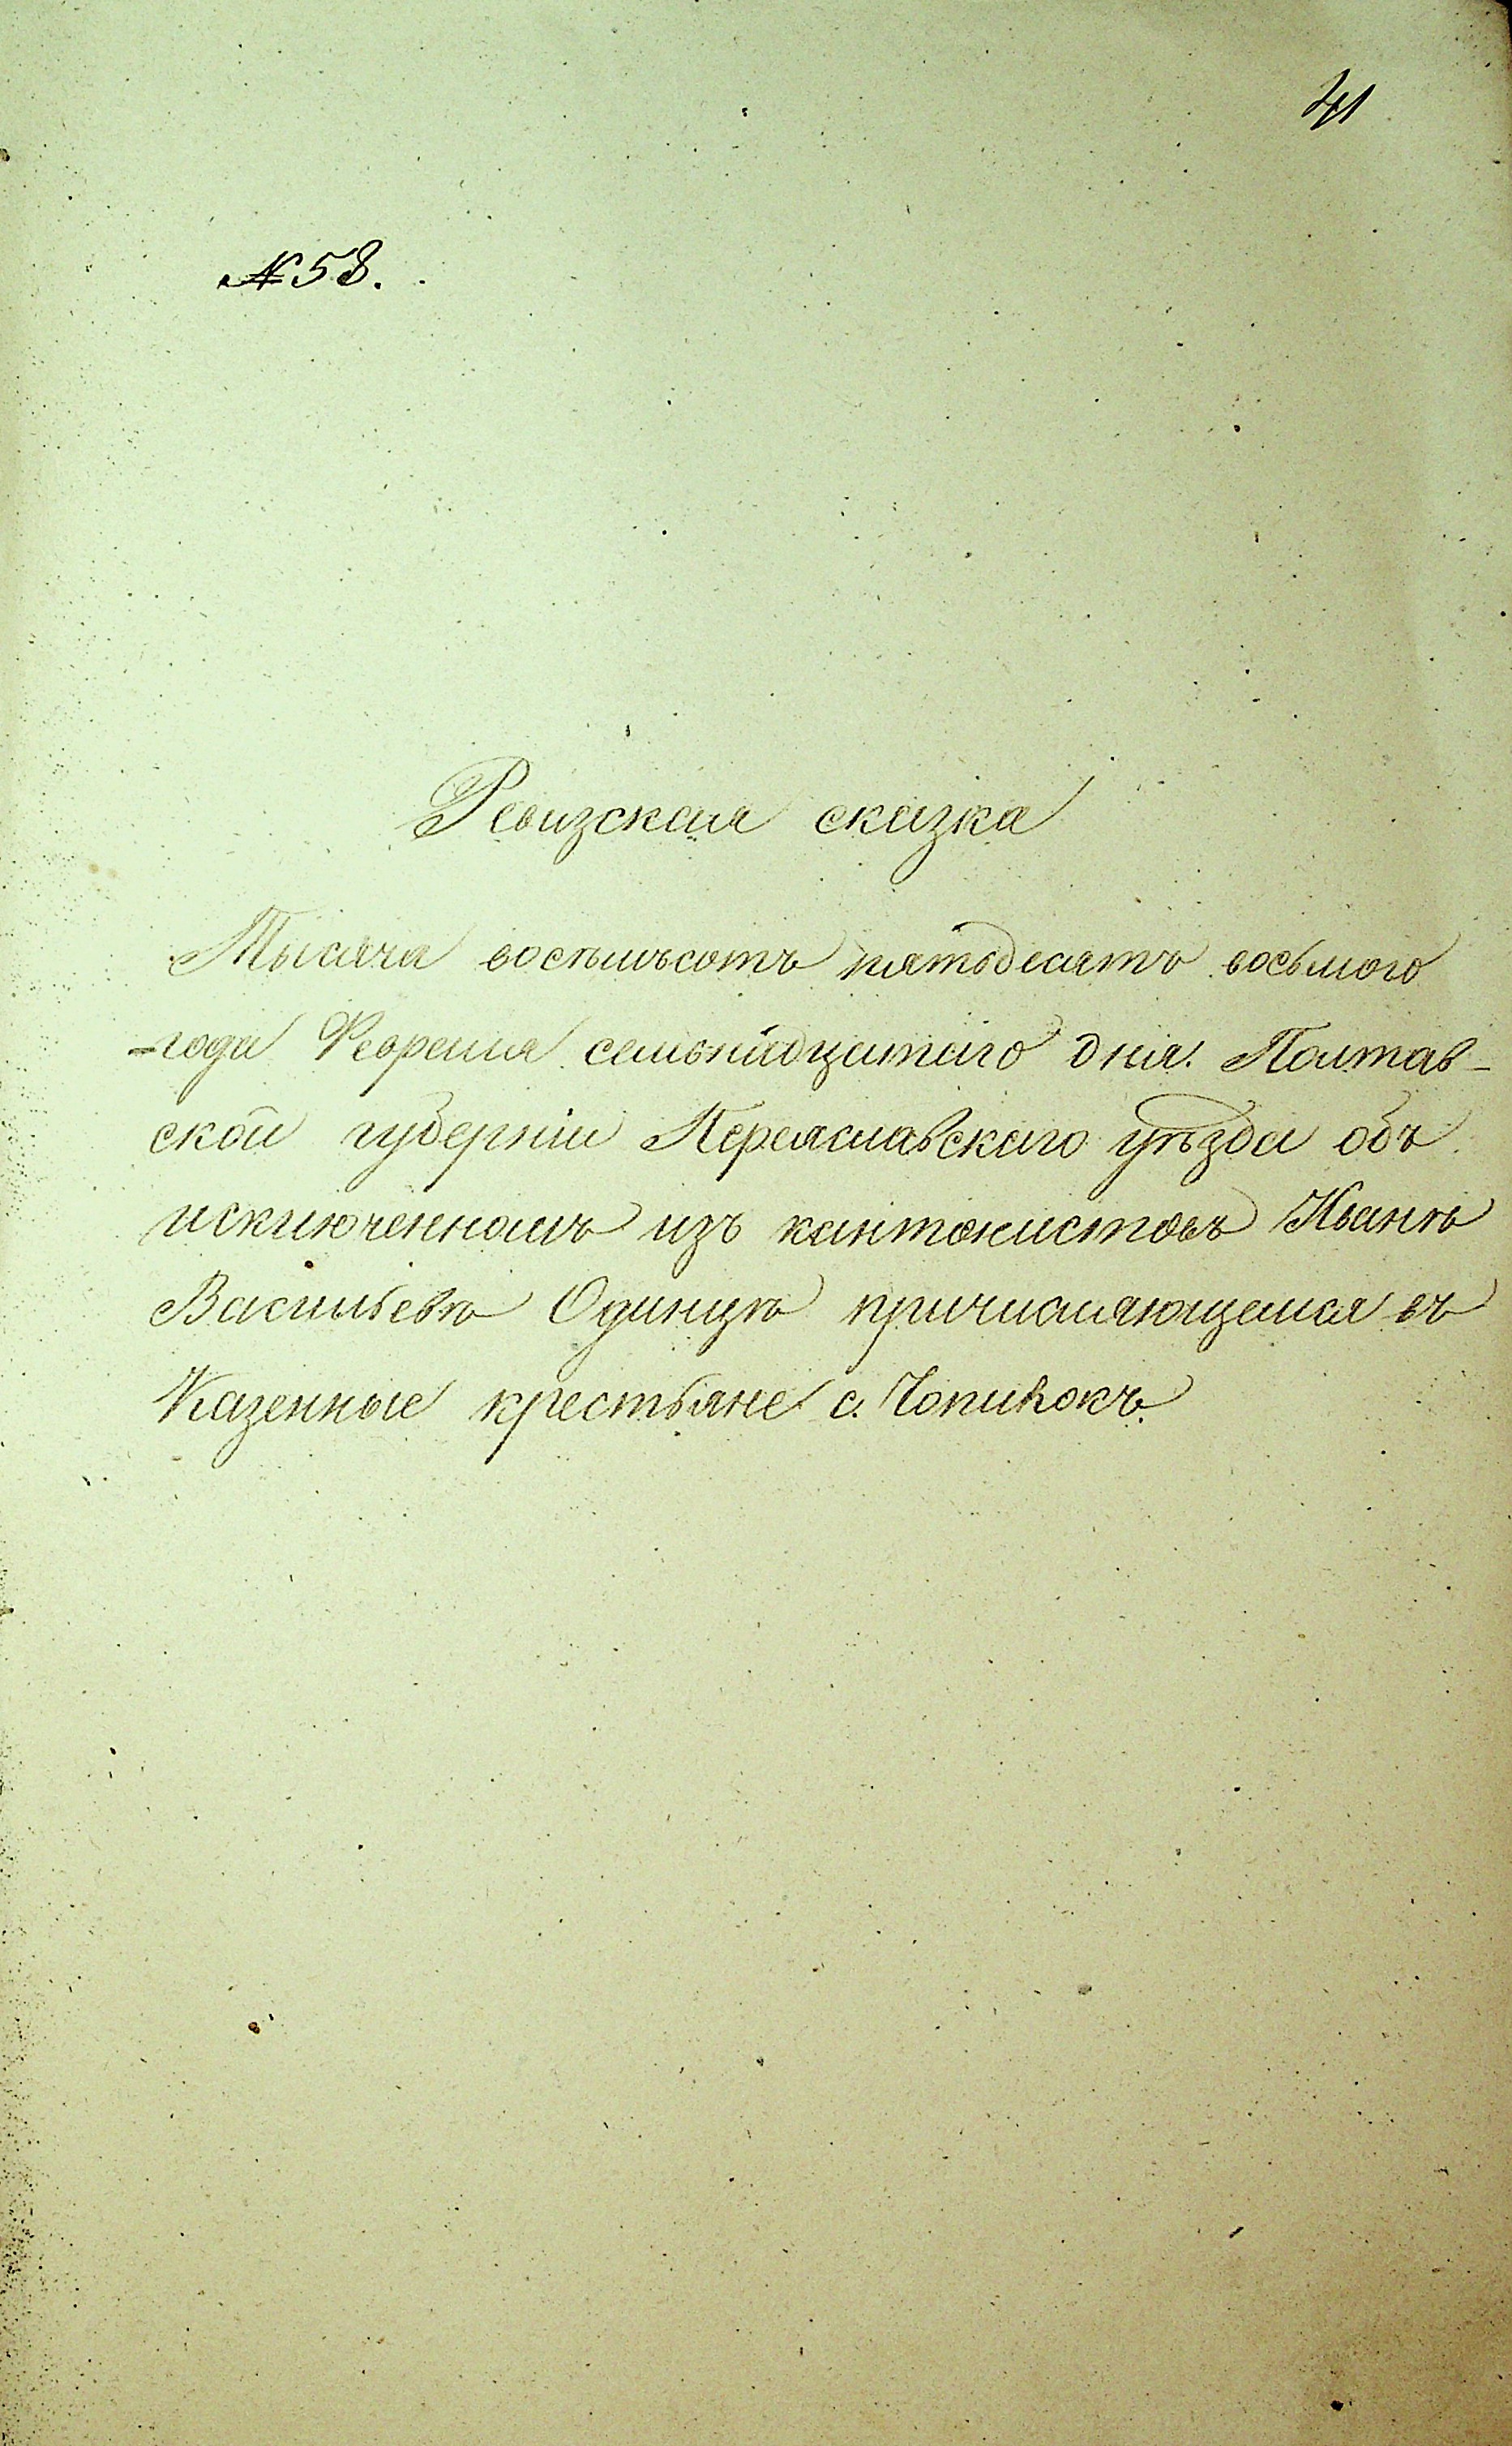 41
№ 58.
Ревизская сказка
Тысяча восемьсотъ пятьдесятъ восьмого
года Февраля семьнадцатаго дня. Полтав-
ской губерніи Переяславскаго уѣзда объ
исключенномъ изъ кантонистовъ Иванѣ
Васильевѣ Одинцѣ причисляющемся въ
Казенные крестьяне с. Чопилокъ.